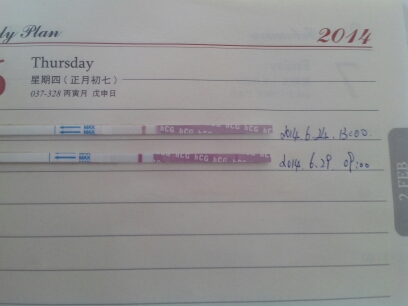 dy Plan
2014
6
Thursday
星期四(正月初七)
037-328 丙寅月 戊申日
MAX
MAX
hCG hCG
2014.6.24. 13:00
MAX
hCG hCG hCG
2014.6.29 09:00
2 FEB